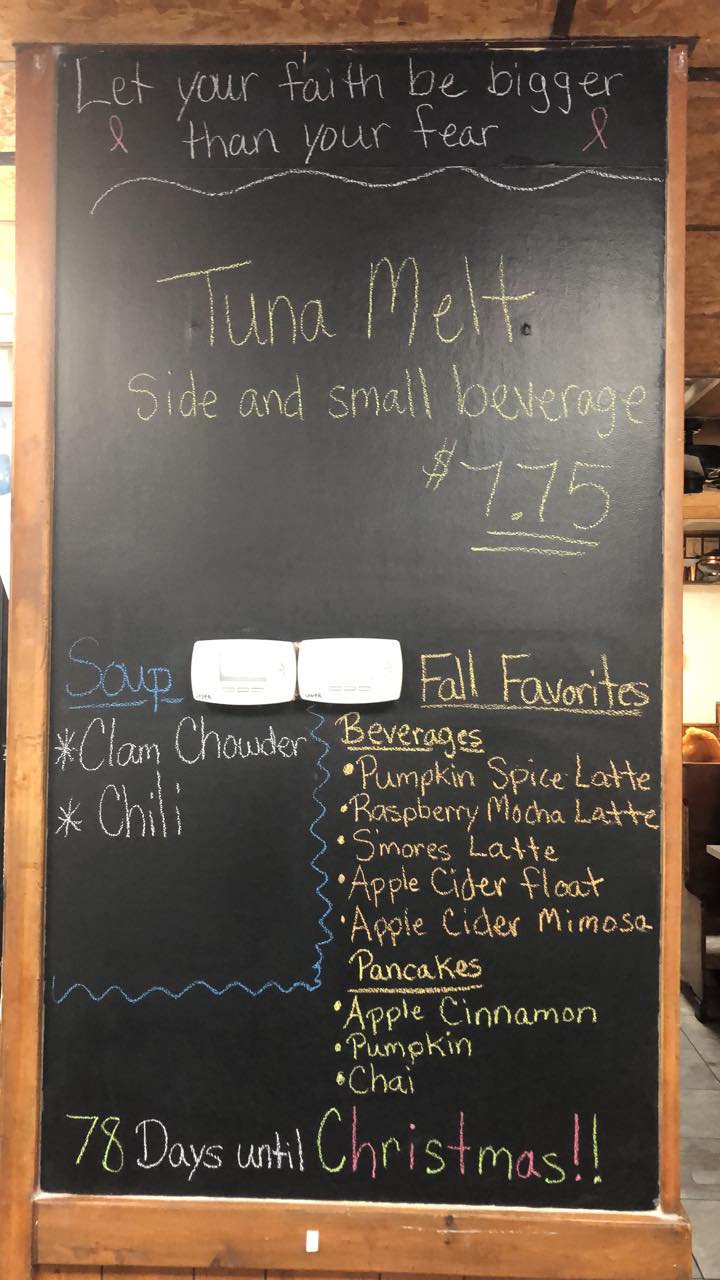 Let your faith be bigger
than your fear
Tuna Melt
Side and small beverage
$7.75
Soup
*Clam Chowder
* Chili
Fall Favorites
Beverages
•Pumpkin Spice Latte
•Raspberry Mocha Latte
•S'mores Latte
•Apple Cider float
•Apple Cider Mimosa
Pancakes
•Apple Cinnamon
•Pumpkin
•Chai
78 Days until Christmas!!